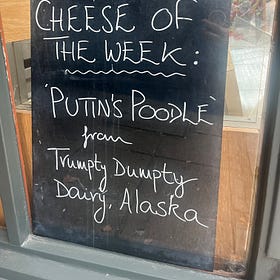 CHEESE OF
THE WEEK:
'PUTIN'S POODLE'
from
Trumpty Dumpty
Dairy, Alaska